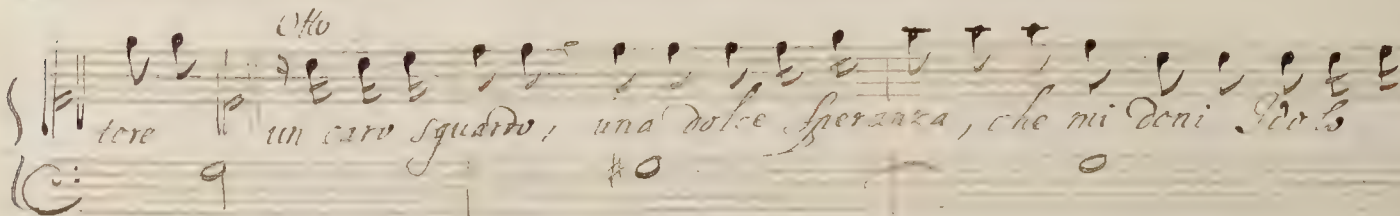 Otto
tore un caro sguardo, una dolce speranza, che mi doni Idolo